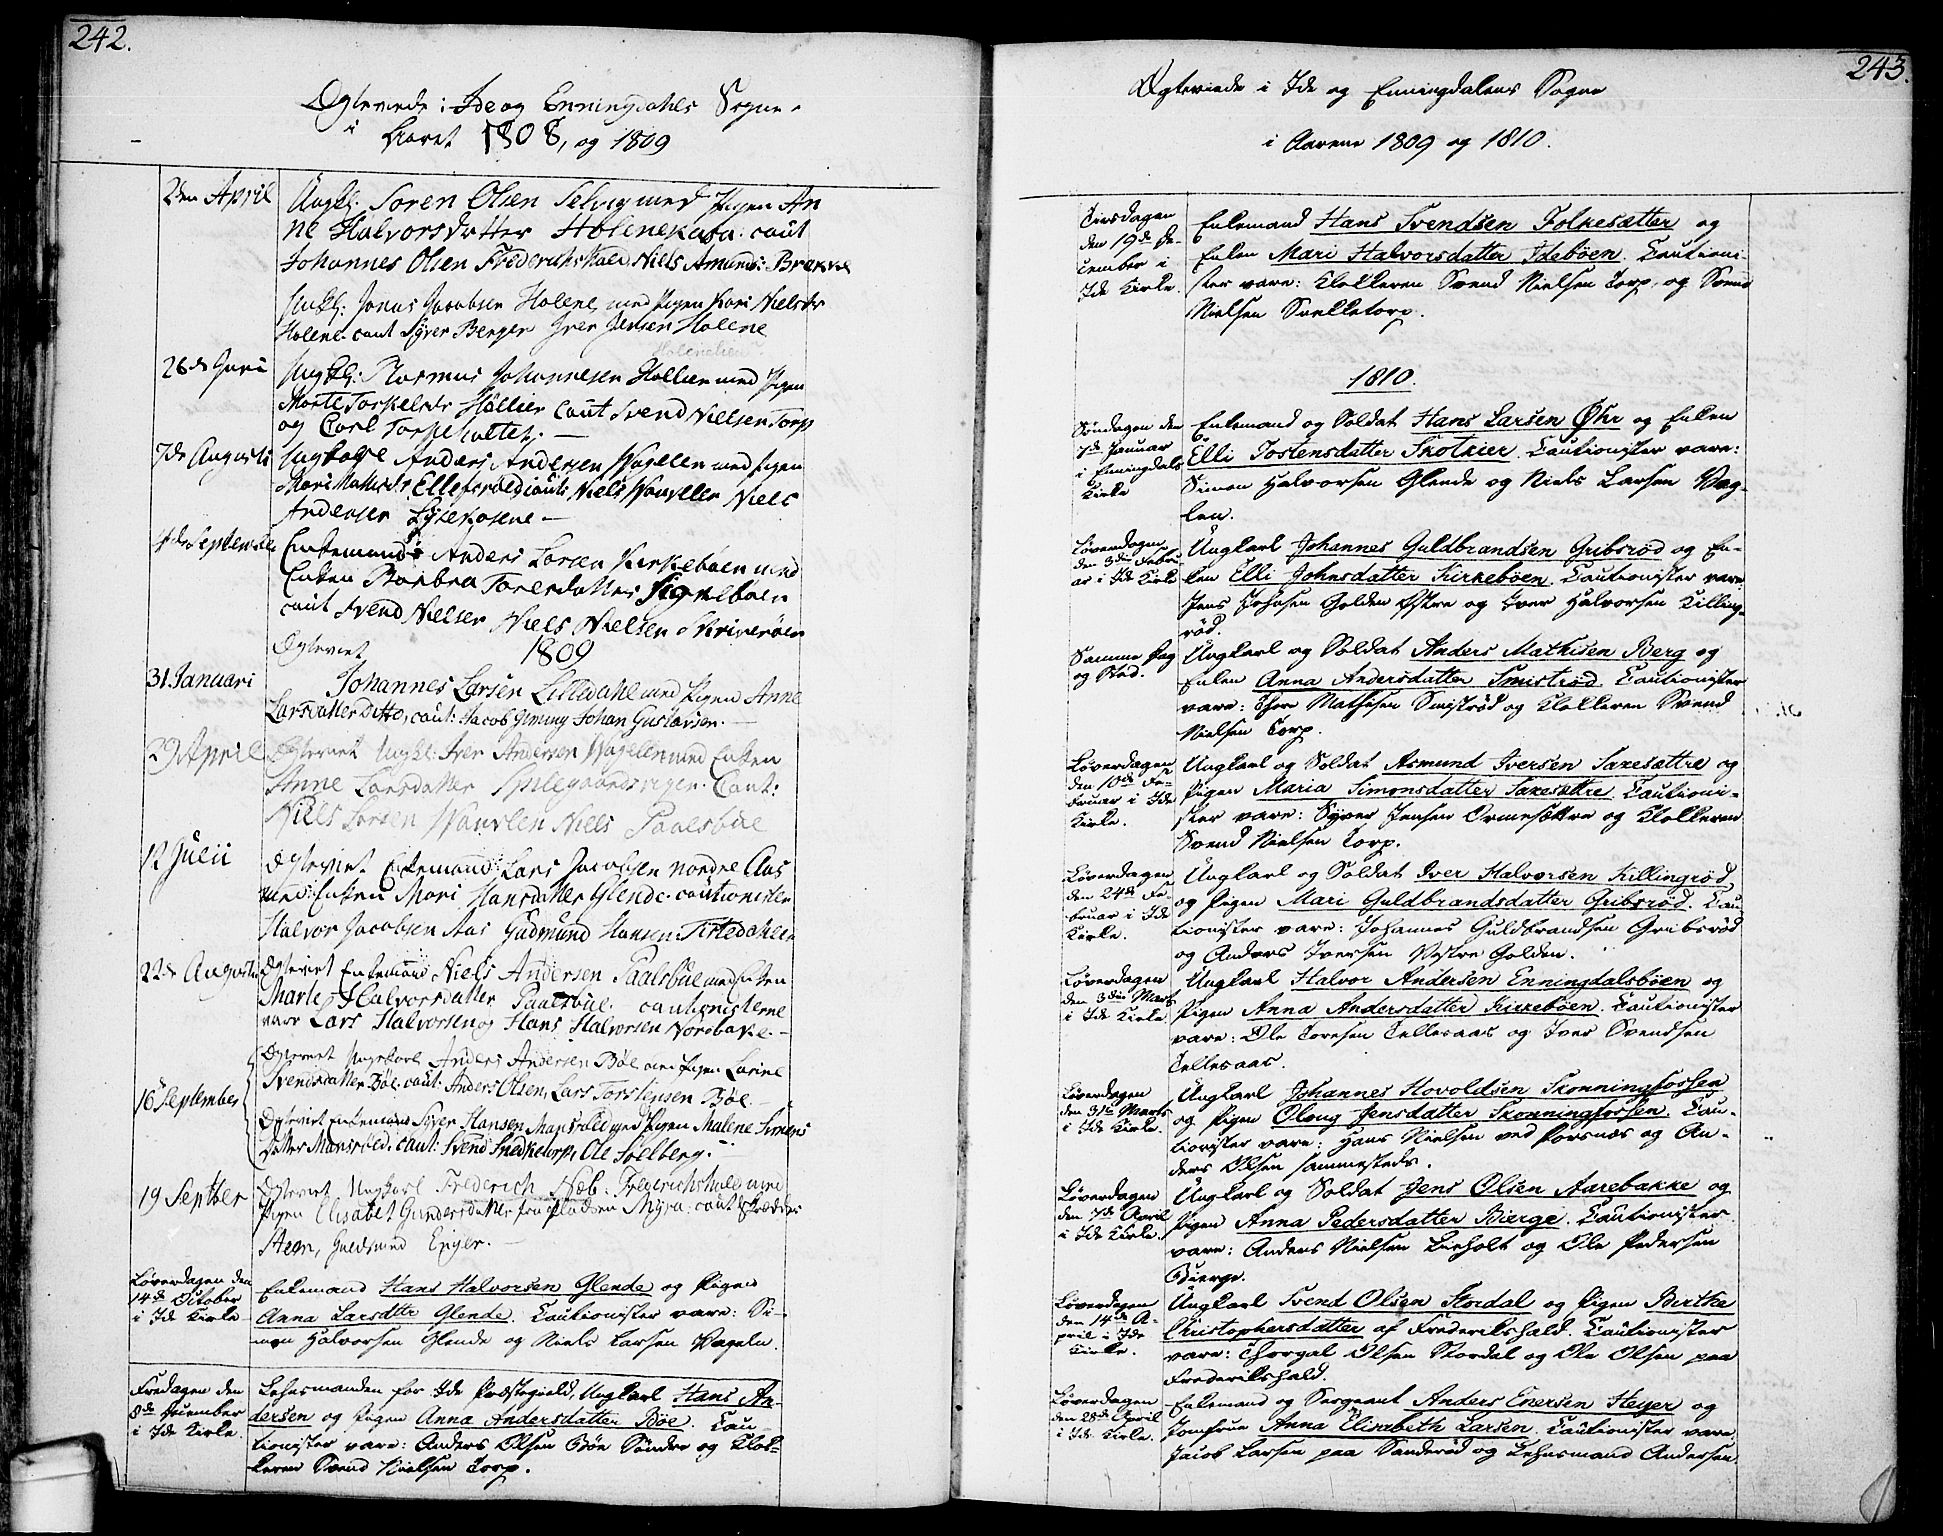 242.
Ægteviede i Ide og Enningdahls Sogne
i Aaret 1808, og 1809
2den April
Ungk: Soren Olsen Selvig med Pigen An
ne Halvorsdatter Holenekasa. caut
Johannes Olsen Frederichshald Niels Amunds: Brekke
Ungk: Jonas Jacobsen Holene med Pigen Kari Nielsdr
Holene. caut Syver Berger Iver Jensen Holene
26de Juni
Ungk: Rasmus Johannesen Hollier med Pigen
Marte Torkelsdr Hollier caut Svend Nielsen Torp
og Carl Torpeholtet. —
7de Augusti
Ungkarl Anders Andersen Wagelen med Pigen
Mari Mathisdr Ellefsrød caut: Niels Wauglen Niels
Andersen Lysekosene —
Septembr
Enkemand Anders Larsen Kirkebøen med
Enken Barbra Toresdatter Kirkebøen
caut Svend Nielsen Niels Nielsen Skriverøen
Ægteviet 1809
31 Januari
Johannes Larsen Lilledahl med Pigen Anne
Larsdatter Ditto, caut: Jacob Gjeming Johan Gustavsen. —
29 April
Ægteviet Ungk: Iver Andersen Wagelen med Enken
Anne Larsdatter Spilegaardseigen. Caut:
Niels Larsen Wauglen Niels Paalsbüe
12 Julii
Ægteviet Enkemand: Lars Jacobsen nordre Aas
med: Enken Mari Hansdatter Glende. cautionister
Halvor Jacobsen Aas Gudmund Hansen Tistedahlen
22de Augustii
Ægteviet Enkemand Niels Andersen Paalsbüe med Enken
Marte Halvorsdatter Paalsbüe. cautionisterne
vare Lars Halvorsen og Hans Halvorsen Nordbakke. —
16 September
Ægteviet Ungekarl Anders Andersen Bøe med Pigen Larine
Svendsdatter Bøe. caut: Anders Olsen, Lars Torstensen Bøe. —
Ægteviet Enkemand Syver Hansen Mansrød med Pigen Malene Simens
datter Mansrød. caut: Svend Snekketorp, Ole Solberg. —
19 Septber
Ægteviet Ungkarl Frederich Næb. Frederichshald med
Pigen Elisabet Gundersdatter fra Pladsen Myra: caut Skredder
Steen, Guldsmed Enger. —
Løverdagen den
14de October
i Ide Kirke
Enkemand Hans Halvorsen Glende og Pigen
Anna Larsdttr Glende. Cautionister vare: Si-
mon Halvorsen Glende og Niels Larsen Vageln.
Fredagen den
8de December
i Ide Kirke.
Lehnsmanden for Ide Præstegield, Ungkarl Hans An-
dersen og Pigen Anna Andersdatter Bøe. Cau-
tionister vare: Anders Olsen Bøe Søndre og Klok-
keren Svend Nielsen Torp.
243.
Ægteviede i Ide og Enningdalens Sogne
i Aarene 1809 og 1810.
Tirsdagen
den 19de De-
cember i
Ide Kirke.
Enkemand Hans Svendsen Folkesætter og
Enken Mari Halvorsdatter Idebøen. Cautioni-
ster vare: Klokkeren Svend Nielsen Torp, og Svend
Nielsen Snelletorp.
1810.
Søndagen den
7de Januar
i Enningdals
Kirke
Enkemand og Soldat Hans Larsen Øhr og Enken
Elli Tostensdatter Skotkier. Cautionister vare:
Simon Halvorsen Glende og Niels Larsen Vag-
len.
Løverdagen
den 3die Febru-
ar i Ide Kirke
Ungkarl Johannes Guldbrandsen Gribsrød og En-
ken Elli Johnsdatter Kirkebøen. Cautionister vare:
Jens Johnsen Golden Østre og Iver Halvorsen Killing-
rød.
Samme Dag
og Sted.
Ungkarl og Soldat Anders Mathisen Berg og
Enken Anna Andersdatter Smistrød. Cautionister
vare: Thore Mathisen Smistrød og Klokkeren Svend
Nielsen Torp.
Løverdagen
den 10de Fe-
bruar i Ide
Kirke.
Ungkarl og Soldat Asmund Iversen Saxesættre og
Pigen Maria Simonsdatter Saxesættre. Cautioni-
ster vare: Syver Jensen Ormesættre og Klokkeren
Svend Nielsen Torp.
Løverdagen
den 24de Fe-
bruar i Ide
Kirke.
Ungkarl og Soldat Iver Halvorsen Killingrød
og Pigen Mari Guldbrandsdatter Gribsrød. Cau-
tionister vare: Johannes Guldbrandsen Gribsrød
og Anders Iversen Vestre Golden.
Løverdagen
den 3die Marts
i Ide Kirke.
Ungkarl Halvor Andersen Enningdalsbøen og
Pigen Anna Andersdatter Kirkebøen. Cautionister
vare: Ole Toresen Tellesaas og Iver Svendsen
Tellesaas.
Løverdagen
den 31te Marts
i Ide Kirke.
Ungkarl Johannes Hovoldsen Skonningfossen
og Pigen Oloug Jensdatter Skonningfossen. Cau-
tionister vare: Hans Nielsen ved Porsnæs og An-
ders Olsen sammesteds.
Løverdagen
den 7de April
i Ide Kirke.
Ungkarl og Soldat Jens Olsen Aarebakke og
Pigen Anna Pedersdatter Bierge. Cautionister
vare: Anders Nielsen Lieholt og Ole Pedersen
Bierge.
Løverdagen
den 14de A-
pril i Ide
Kirke.
Ungkarl Svend Olsen Stordal og Pigen Birthe
Christophersdatter af Frederikshald. Cautionister
vare: Thorgal Olsen Stordal og Ole Olsen paa
Frederikshald.
Løverdagen
den 28de April
i Ide Kirke.
Enkemand og Sergeant Anders Enersen Heyer og
Jomfrue Anna Elisabeth Larsen. Cautionister vare
Jacob Larsen paa Sanderød og Lehnsmand Andersen